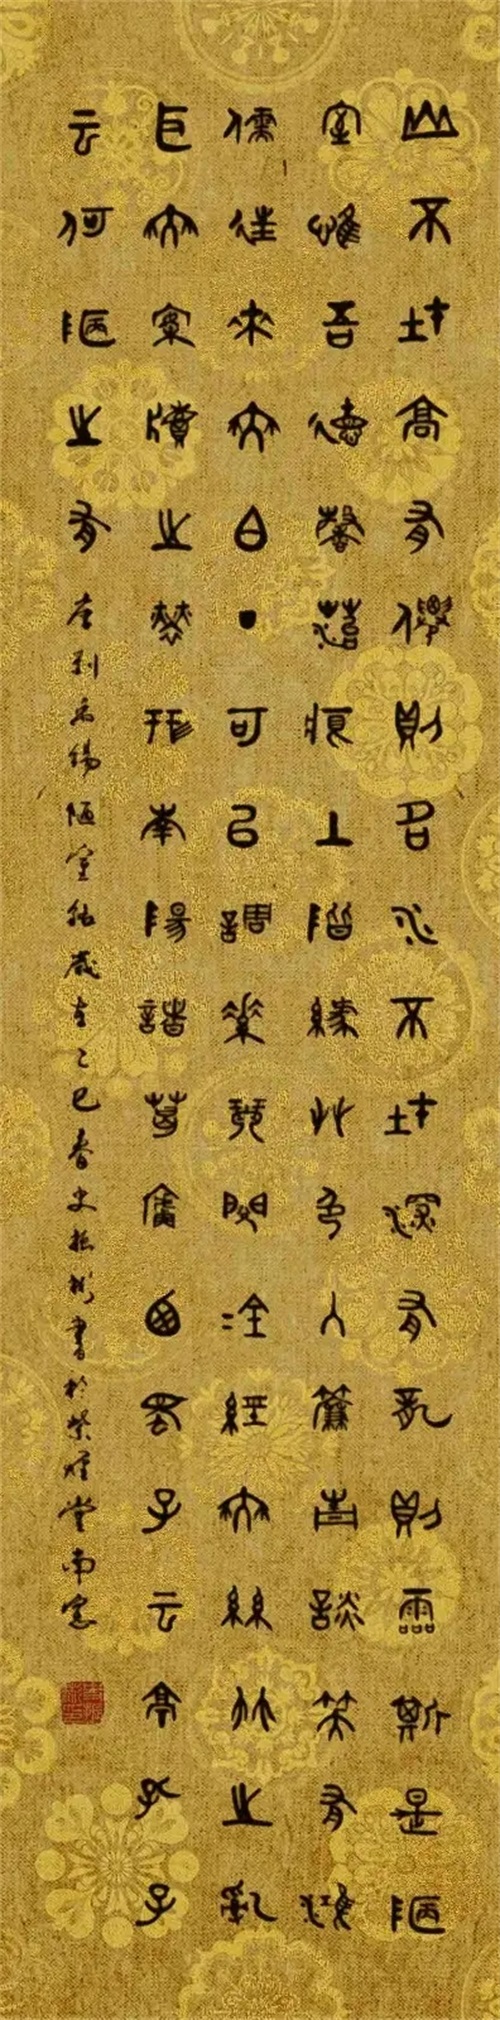 山不在高有僊則名水不在深有龍則靈斯是陋
室惟吾德馨苔痕上階綠艸色入簾青談笑有鴻
儒往來無白丁可以調素琴閱金經無絲竹之亂
耳無案牘之勞形南陽諸葛廬西蜀子云亭孔子
云何陋之有
唐劉禹錫陋室銘歲在乙巳春史振彬書於紫煙堂南窗